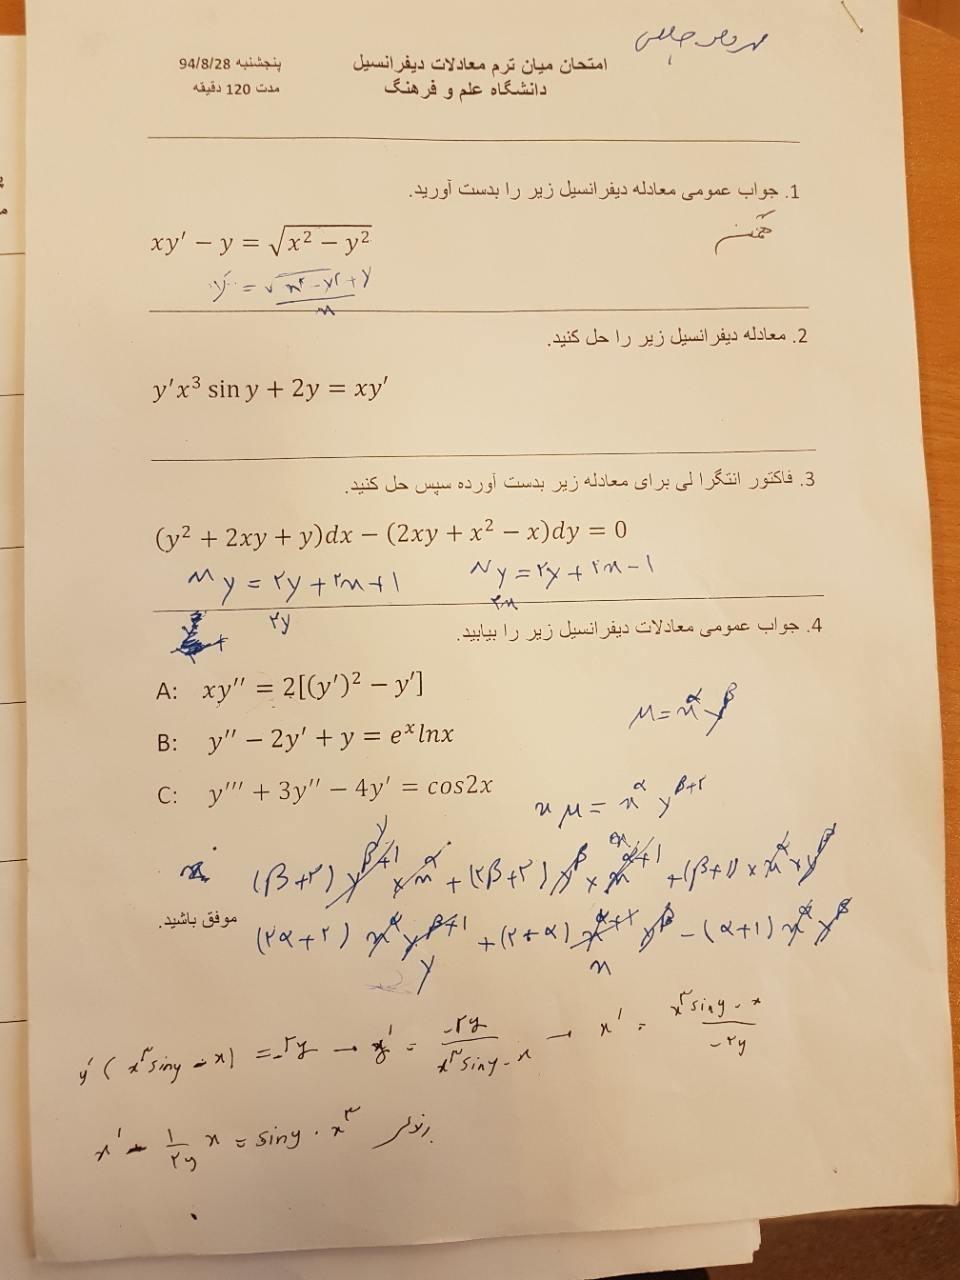 امتحان میان ترم معادلات دیفرانسیل
پنجشنبه 94/8/28
دانشگاه علم و فرهنگ
مدت 120 دقیقه
1. جواب عمومی معادله دیفرانسیل زیر را بدست آورید.
xy′ − y = √(x² − y²)
همگن
y′ = (√(x² − y²) + y)/x
2. معادله دیفرانسیل زیر را حل کنید.
y′x³ sin y + 2y = xy′
3. فاکتور انتگرا لی برای معادله زیر بدست آورده سپس حل کنید.
(y² + 2xy + y)dx − (2xy + x² − x)dy = 0
My = ۲y + ۲x + 1
Ny = ۲y + ۲x − 1
۲x
۲y
4. جواب عمومی معادلات دیفرانسیل زیر را بیابید.
A: xy″ = 2[(y′)² − y′]
μ = x^α y^β
B: y″ − 2y′ + y = eˣlnx
C: y‴ + 3y″ − 4y′ = cos2x
x μ = x^α y^(β+۲)
(β+۲) y^(β+1) × x^α + (۲β+۲) y^β × x^(α+1) + (β+1) × x^α × y^β
موفق باشید.
(۲α+۲) x^α y^(β+1) + (۲+α) x^(α+1) y^β − (α+1) x^α y^β
y′ (x³ siny − x) = −۲y → y′ = −۲y/(x³ siny − x) → x′ = (x³ siny − x)/(−۲y)
x′ − (1/۲y) x = siny · x³ برنولی